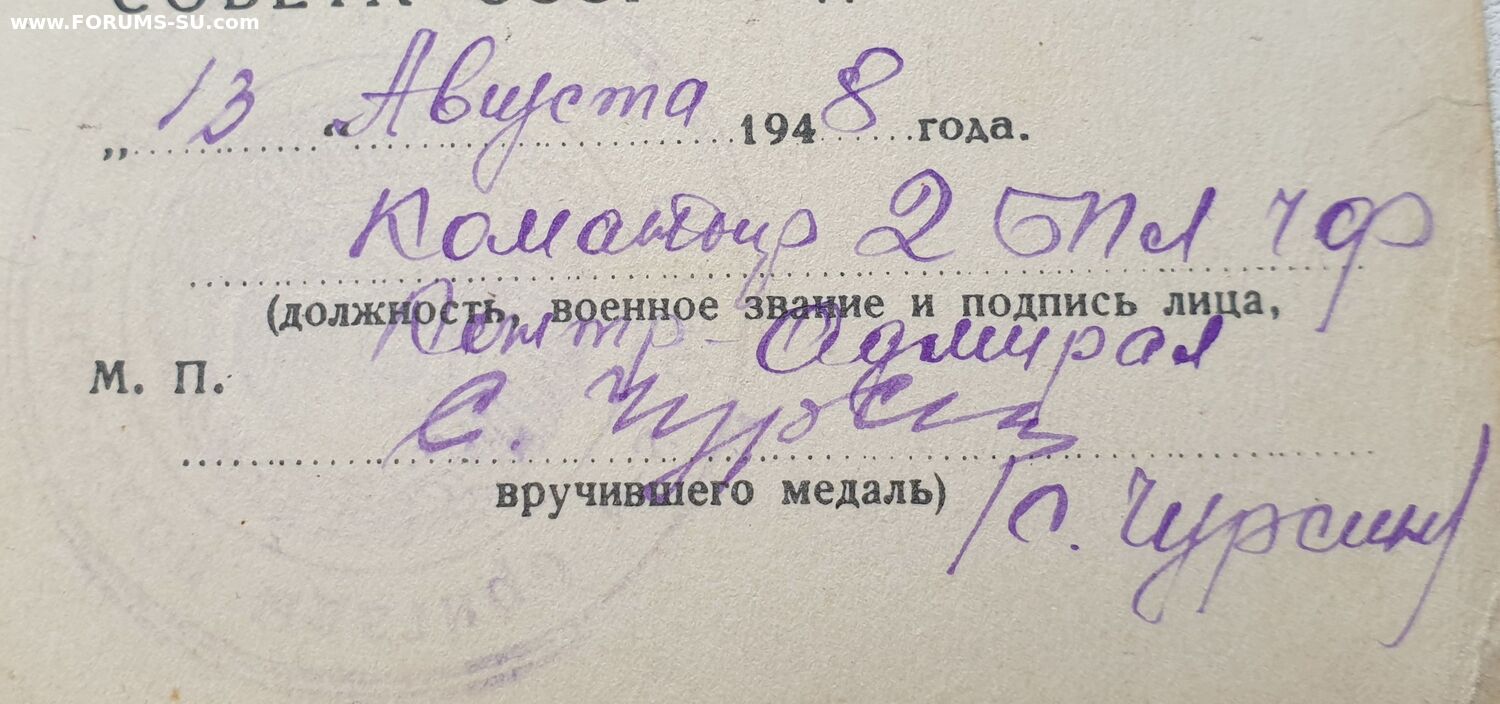 СОВЕТА СССР
www.FORUMS-SU.com
„ 13 “ Августа 1948 года.
Командир 2 БПЛ ЧФ
(должность, военное звание и подпись лица,
Контр-Адмирал
М. П.
С. Чурсин
вручившего медаль)
(С. Чурсин)